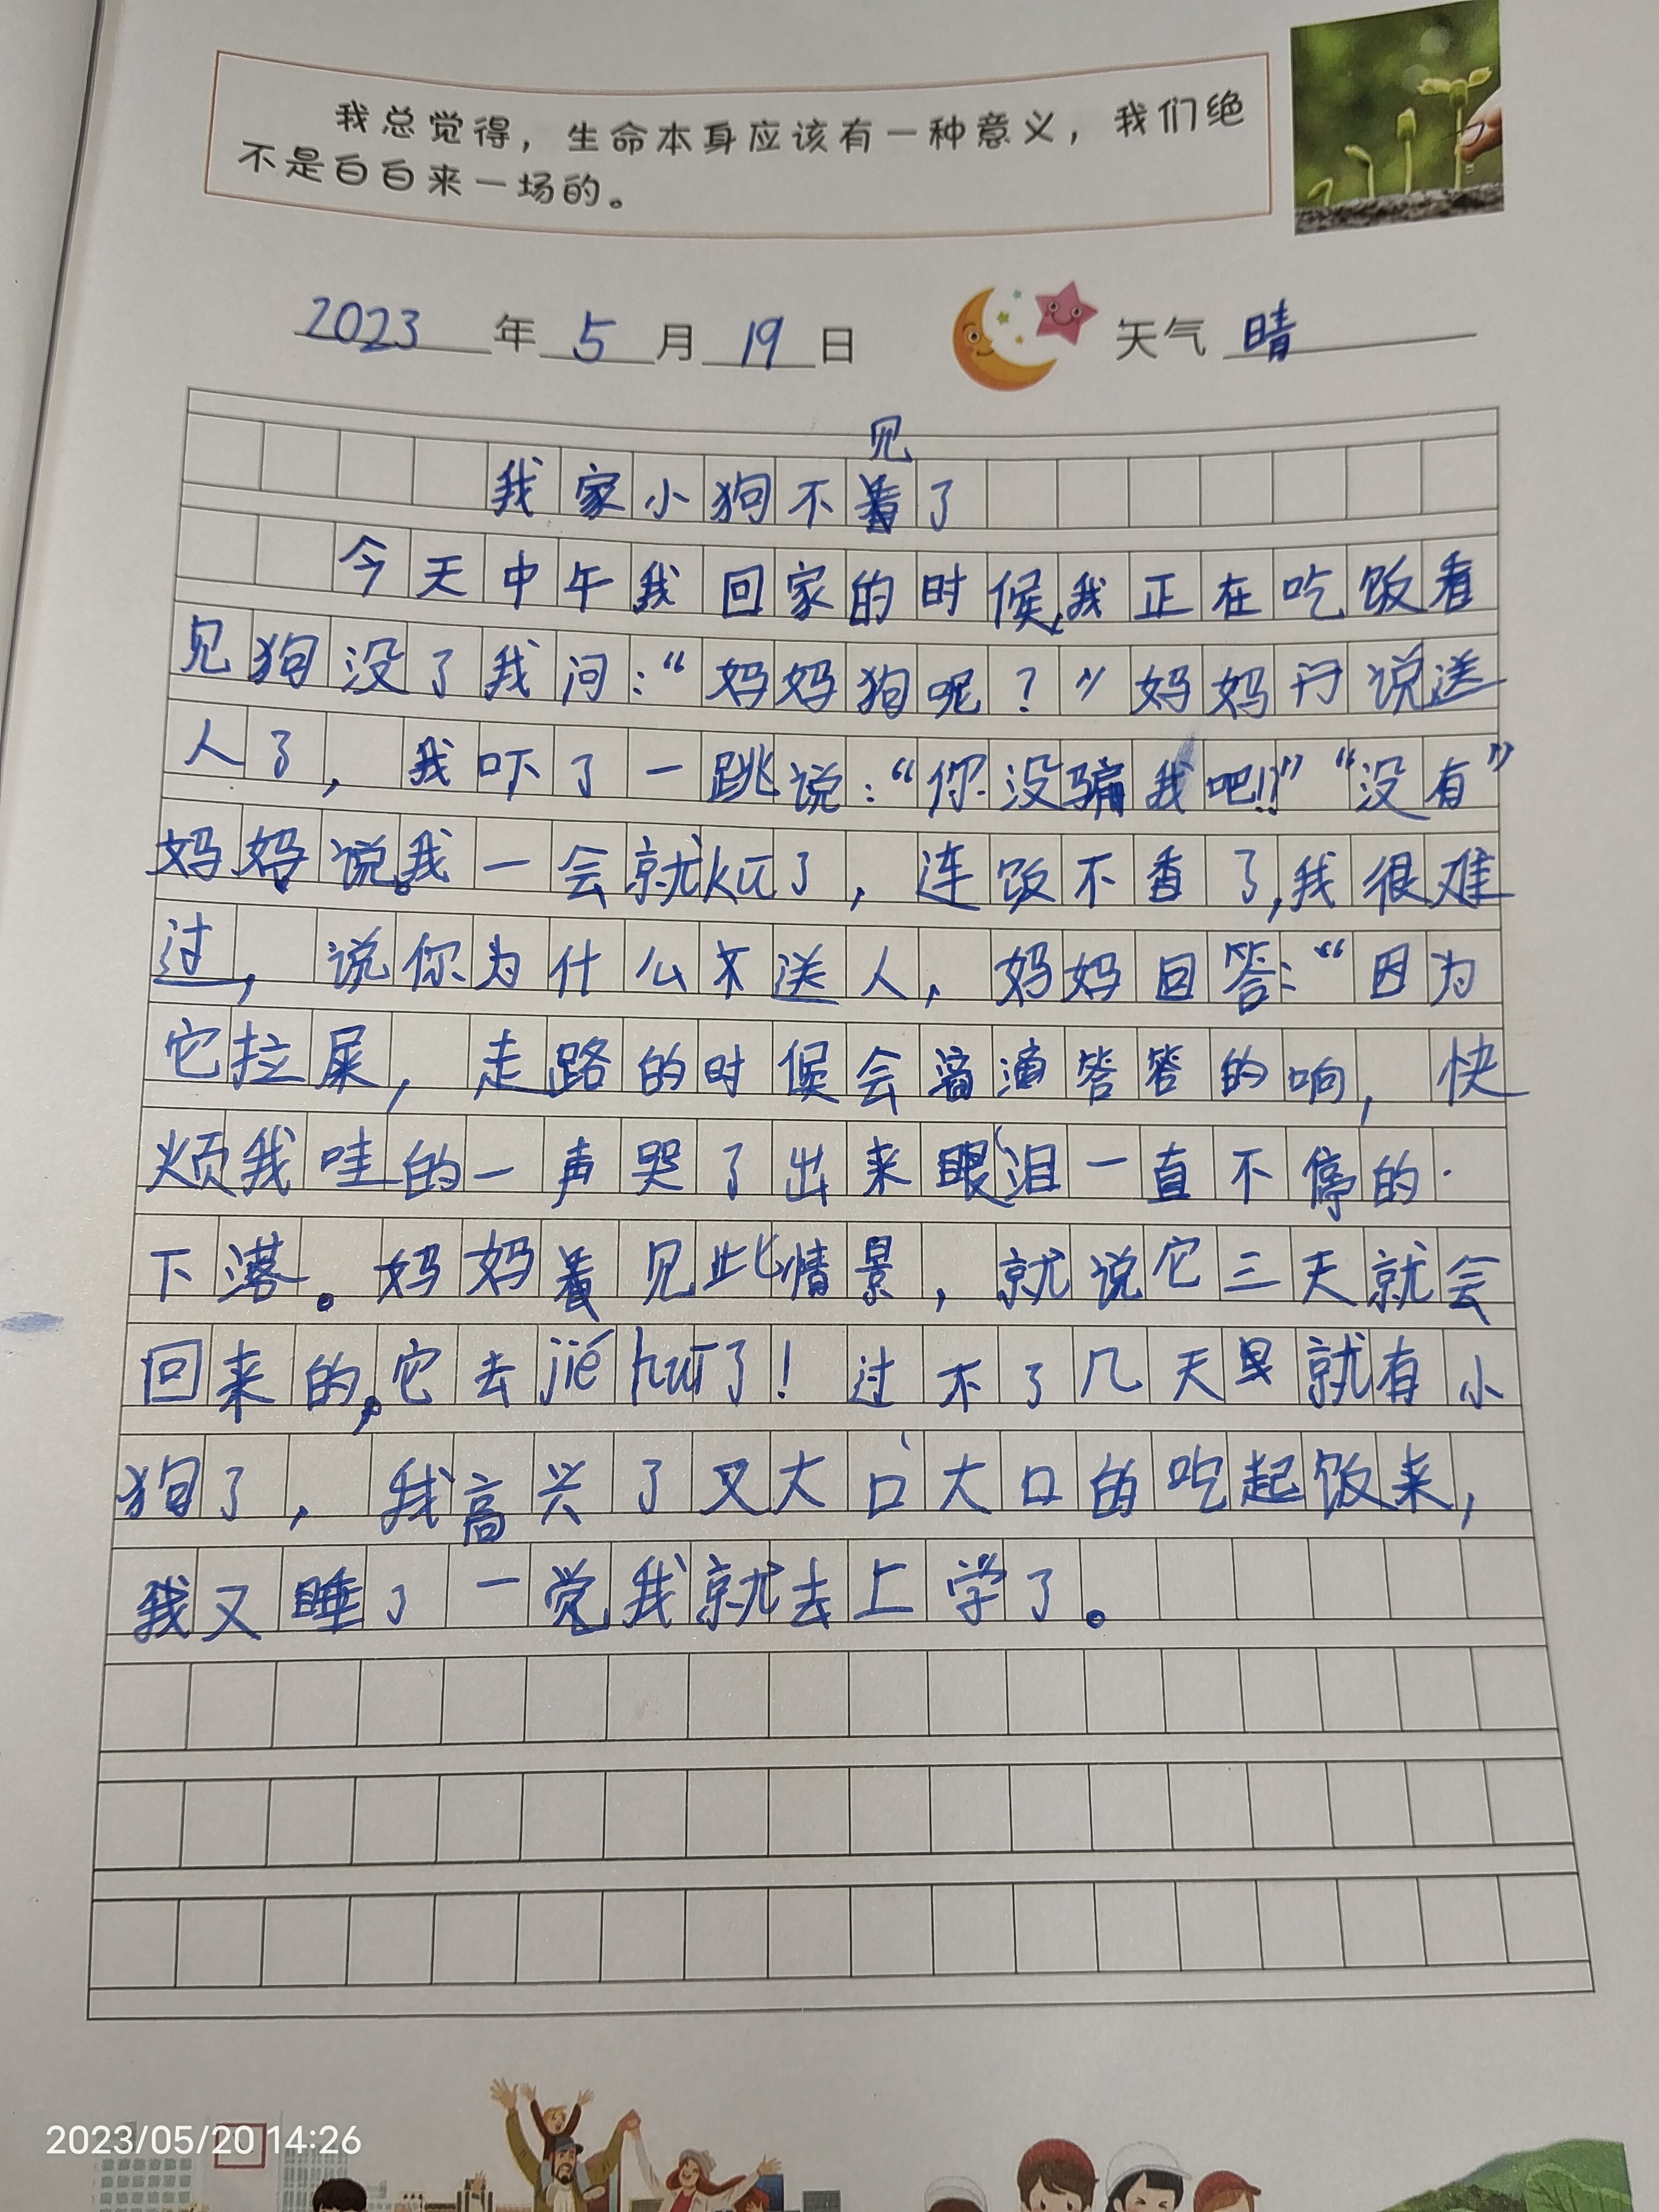 我总觉得，生命本身应该有一种意义，我们绝
不是白白来一场的。
2023年5月19日 天气 晴
见
我家小狗不着了
今天中午我回家的时候,我正在吃饭看
见狗没了我问:“妈妈狗呢？”妈妈说送
人了，我吓了一跳说:“你没骗我吧!!”“没有”
妈妈说。我一会就kū了，连饭不香了,我很难
过，说你为什么不送人，妈妈回答:“因为
它拉屎，走路的时候会滴滴答答的响，快
烦我哇的一声哭了出来眼泪一直不停的.
下落。妈妈着见此情景，就说它三天就会
回来的,它去jié hūn了！过不了几天就有小
狗了，我高兴了又大口大口的吃起饭来，
我又睡了一觉我就去上学了。
2023/05/20 14:26